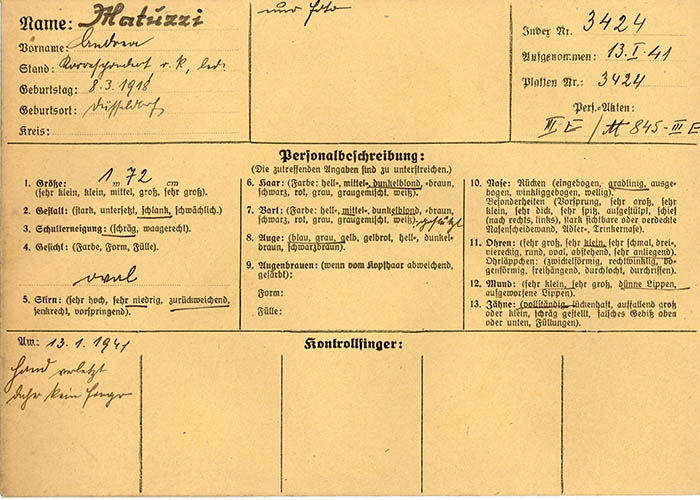 Name: Matuzzi
nur Foto
Index Nr. 3424
Vorname: Andrea
Aufgenommen: 13.I.41
Stand: Korrespondent r. k., led.
Platten Nr.: 3424
Geburtstag: 8.3.1918
Geburtsort: Düsseldorf
Pers.-Akten:
III E / A 845-III E
Kreis:
Personalbeschreibung:
(Die zutreffenden Angaben sind zu unterstreichen.)
1. Größe: 1 m 72 cm
(sehr klein, klein, mittel, groß, sehr groß).
2. Gestalt: (stark, untersetzt, schlank, schwächlich).
3. Schulterneigung: (schräg, waagerecht).
4. Gesicht: (Farbe, Form, Fülle).
oval
5. Stirn: (sehr hoch, sehr niedrig, zurückweichend,
senkrecht, vorspringend).
6. Haar: (Farbe: hell-, mittel-, dunkelblond, -braun,
schwarz, rot, grau, graugemischt, weiß).
7. Bart: (Farbe: hell-, mittel-, dunkelblond, -braun,
schwarz, rot, grau, graugemischt, weiß).
8. Auge: (blau, grau, gelb, gelbrot, hell-, dunkel-
braun, schwarzbraun).
9. Augenbrauen: (wenn vom Kopfhaar abweichend,
gefärbt):
Form:
Fülle:
10. Nase: Rücken (eingebogen, gradlinig, ausge-
bogen, winkliggebogen, wellig).
Besonderheiten (Vorsprung, sehr groß, sehr
klein, sehr dick, sehr spitz, aufgestülpt, schief
(nach rechts, links), stark sichtbare oder verdeckte
Nasenscheidewand, Adler-, Trinkernase).
11. Ohren: (sehr groß, sehr klein, sehr schmal, drei-,
viereckig, rund, oval, abstehend, sehr anliegend).
Ohrläppchen: (zwickelförmig, rechtwinklig, bo-
genförmig, freihängend, durchlocht, durchrissen).
12. Mund: (sehr klein, sehr groß, dünne Lippen,
aufgeworfene Lippen).
13. Zähne: (vollständig, lückenhaft, auffallend groß
oder klein, schräg gestellt, falsches Gebiß oben
oder unten, Füllungen).
Am: 13.1.1941
Kontrollfinger:
Hand verletzt
daher kein